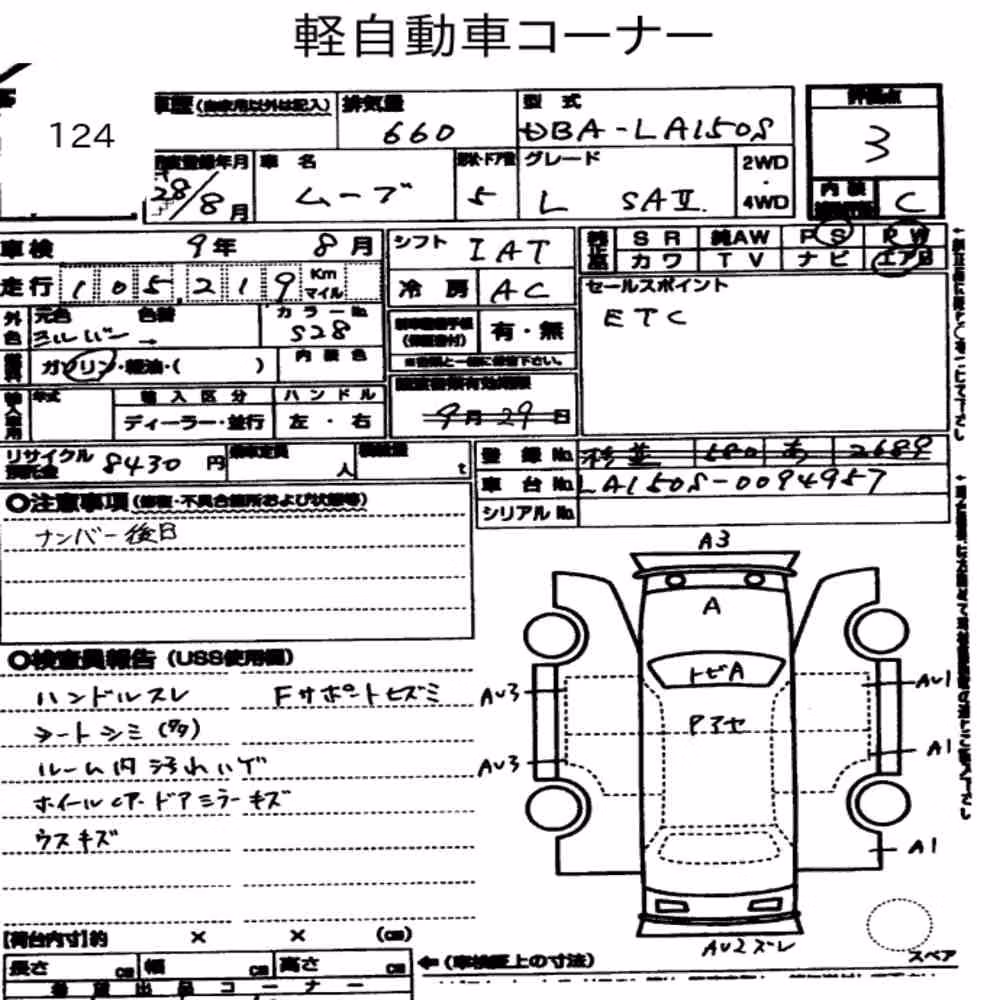 軽自動車コーナー
124
車歴 (自家用以外は記入)
排気量 660
型式 DBA-LA150S
評価点 3
内装 C
28/8月
車名 ムーブ
形状・ドア数 5
グレード L SAⅡ
2WD・4WD
車検 9年 8月
シフト IAT
純正品 SR 純AW PS PW
カワ TV ナビ エアB
走行 105,219 Km マイル
冷房 AC
セールスポイント
ETC
外色 元色 シルバー 色替 →
カラーNo. S28
有・無
(保証書付)
※書類と一緒に保管下さい。
燃料 ガソリン・軽油・( )
内装色
9月29日
輸入車用 年式 輸入区分 ハンドル
ディーラー・並行 左・右
リサイクル預託金 8430円
乗車定員 人
積載量 t
登録No. 580 あ 2689
車台No. LA150S-0094957
シリアルNo.
○注意事項 (修復・不具合箇所および状態等)
ナンバー後日
○検査員報告 (USS使用欄)
ハンドルスレ Fサポートヒズミ
シートシミ(多)
ルーム内汚れいび
ホイールcアードアミラーキズ
ウスキズ
A3
A
トビA
Pアヤ
AU3
AU3
AU1
A1
A1
AU2ズレ
スペア
[荷台内寸]約 × × (cm)
長さ cm 幅 cm 高さ cm
← (車検証上の寸法)
希望出品コーナー